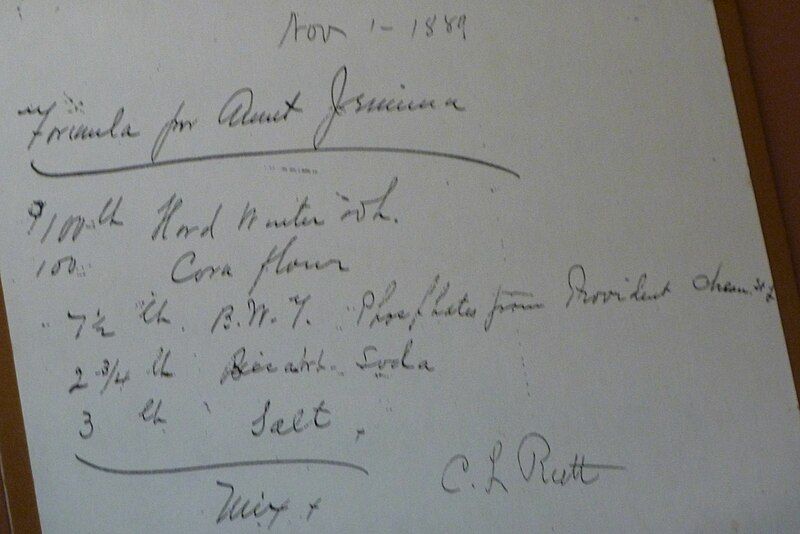 Nov 1 - 1889
Formula for Aunt Jemima
100 lb Hard Winter Wh.
100 Corn flour
7 1/2 lb. B.W.T. Phosphates from Provident Chem. St L
2 3/4 lb Bicarb. Soda
3 lb Salt.
Mix
C. L Rutt